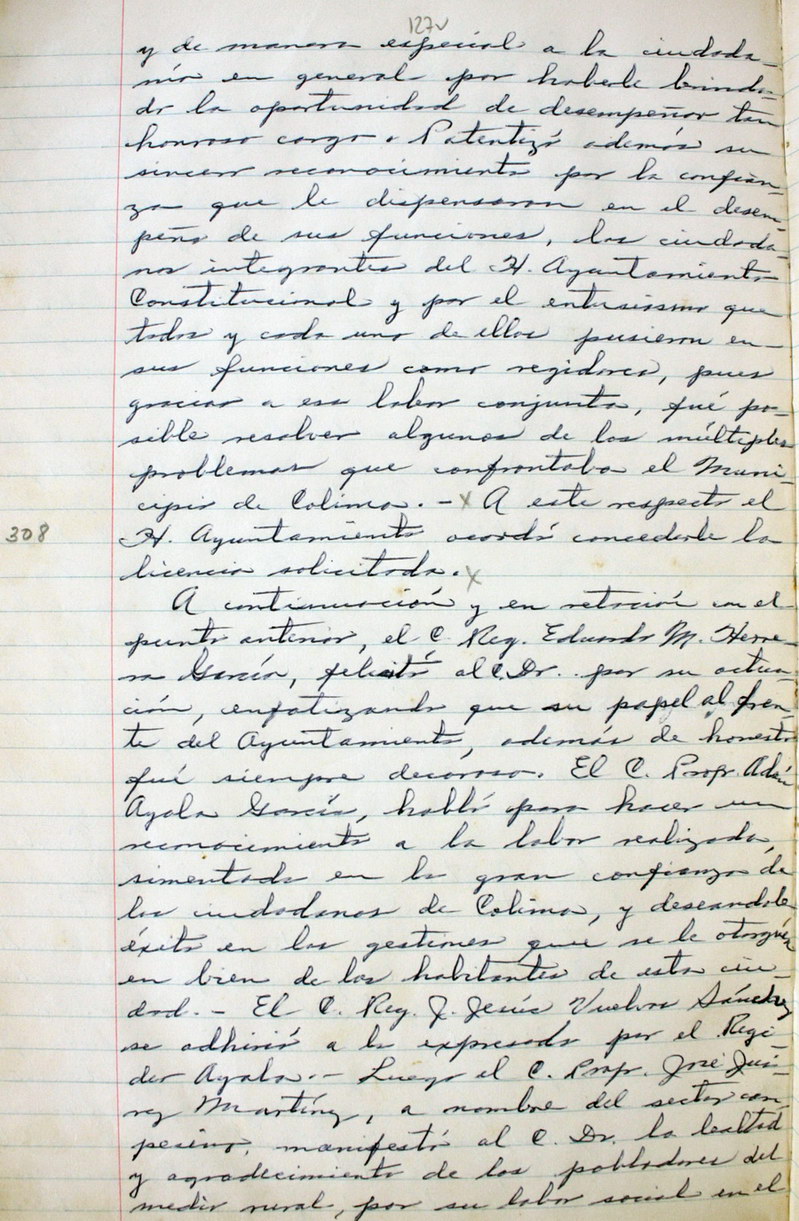 127v
y de manera especial a la ciudada-
nía en general por haberle brinda-
do la oportunidad de desempeñar tan
honroso cargo. Patentizó además su
sincero reconocimiento por la confian-
za que le dispensaron en el desem-
peño de sus funciones, los ciudada-
nos integrantes del H. Ayuntamiento
Constitucional y por el entusiasmo que
todos y cada uno de ellos pusieron en
sus funciones como regidores, pues
gracias a esa labor conjunta, fué po-
sible resolver algunos de los múltiples
problemas que confrontaba el Muni-
cipio de Colima. - x A este respecto el
308 H. Ayuntamiento acordó concederle la
licencia solicitada. x
A continuación y en relación con el
punto anterior, el C. Reg. Eduardo M. Herre-
ra García, felicitó al C. Dr. por su actua-
ción, enfatizando que su papel al fren-
te del Ayuntamiento, además de honesto
fué siempre decoroso. El C. Profr. Adán
Ayala García, habló para hacer un
reconocimiento a la labor realizada,
simentada en la gran confianza de
los ciudadanos de Colima, y deseandole
éxito en las gestiones que se le
en bien de los habitantes de esta ciu-
dad. - El C. Reg. J. Jesús Vuelvas Sánchez
se adhirió a lo expresado por el Regi-
dor Ayala. - Luego el C. Profr. José Juá-
rez Martínez, a nombre del sector cam-
pesino, manifestó al C. Dr. la lealtad
y agradecimiento de los pobladores del
medio rural, por su labor social en el